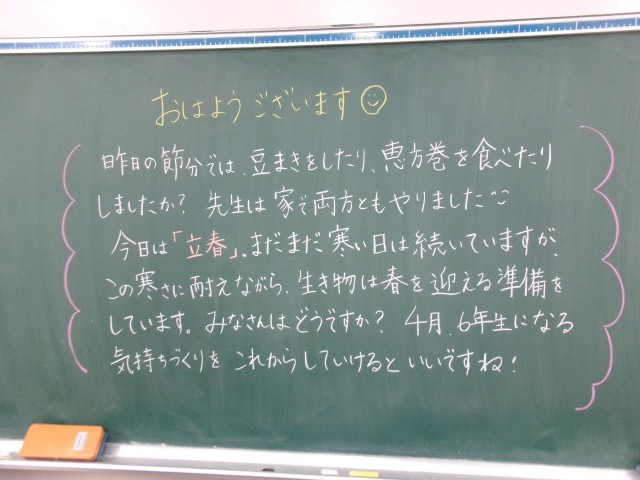 おはようございます
昨日の節分では、豆まきをしたり、恵方巻を食べたり
しましたか？ 先生は家で両方ともやりました
今日は「立春」。まだまだ寒い日は続いていますが、
この寒さに耐えながら、生き物は春を迎える準備を
しています。みなさんはどうですか？ 4月、6年生になる
気持ちづくりを これからしていけるといいですね！